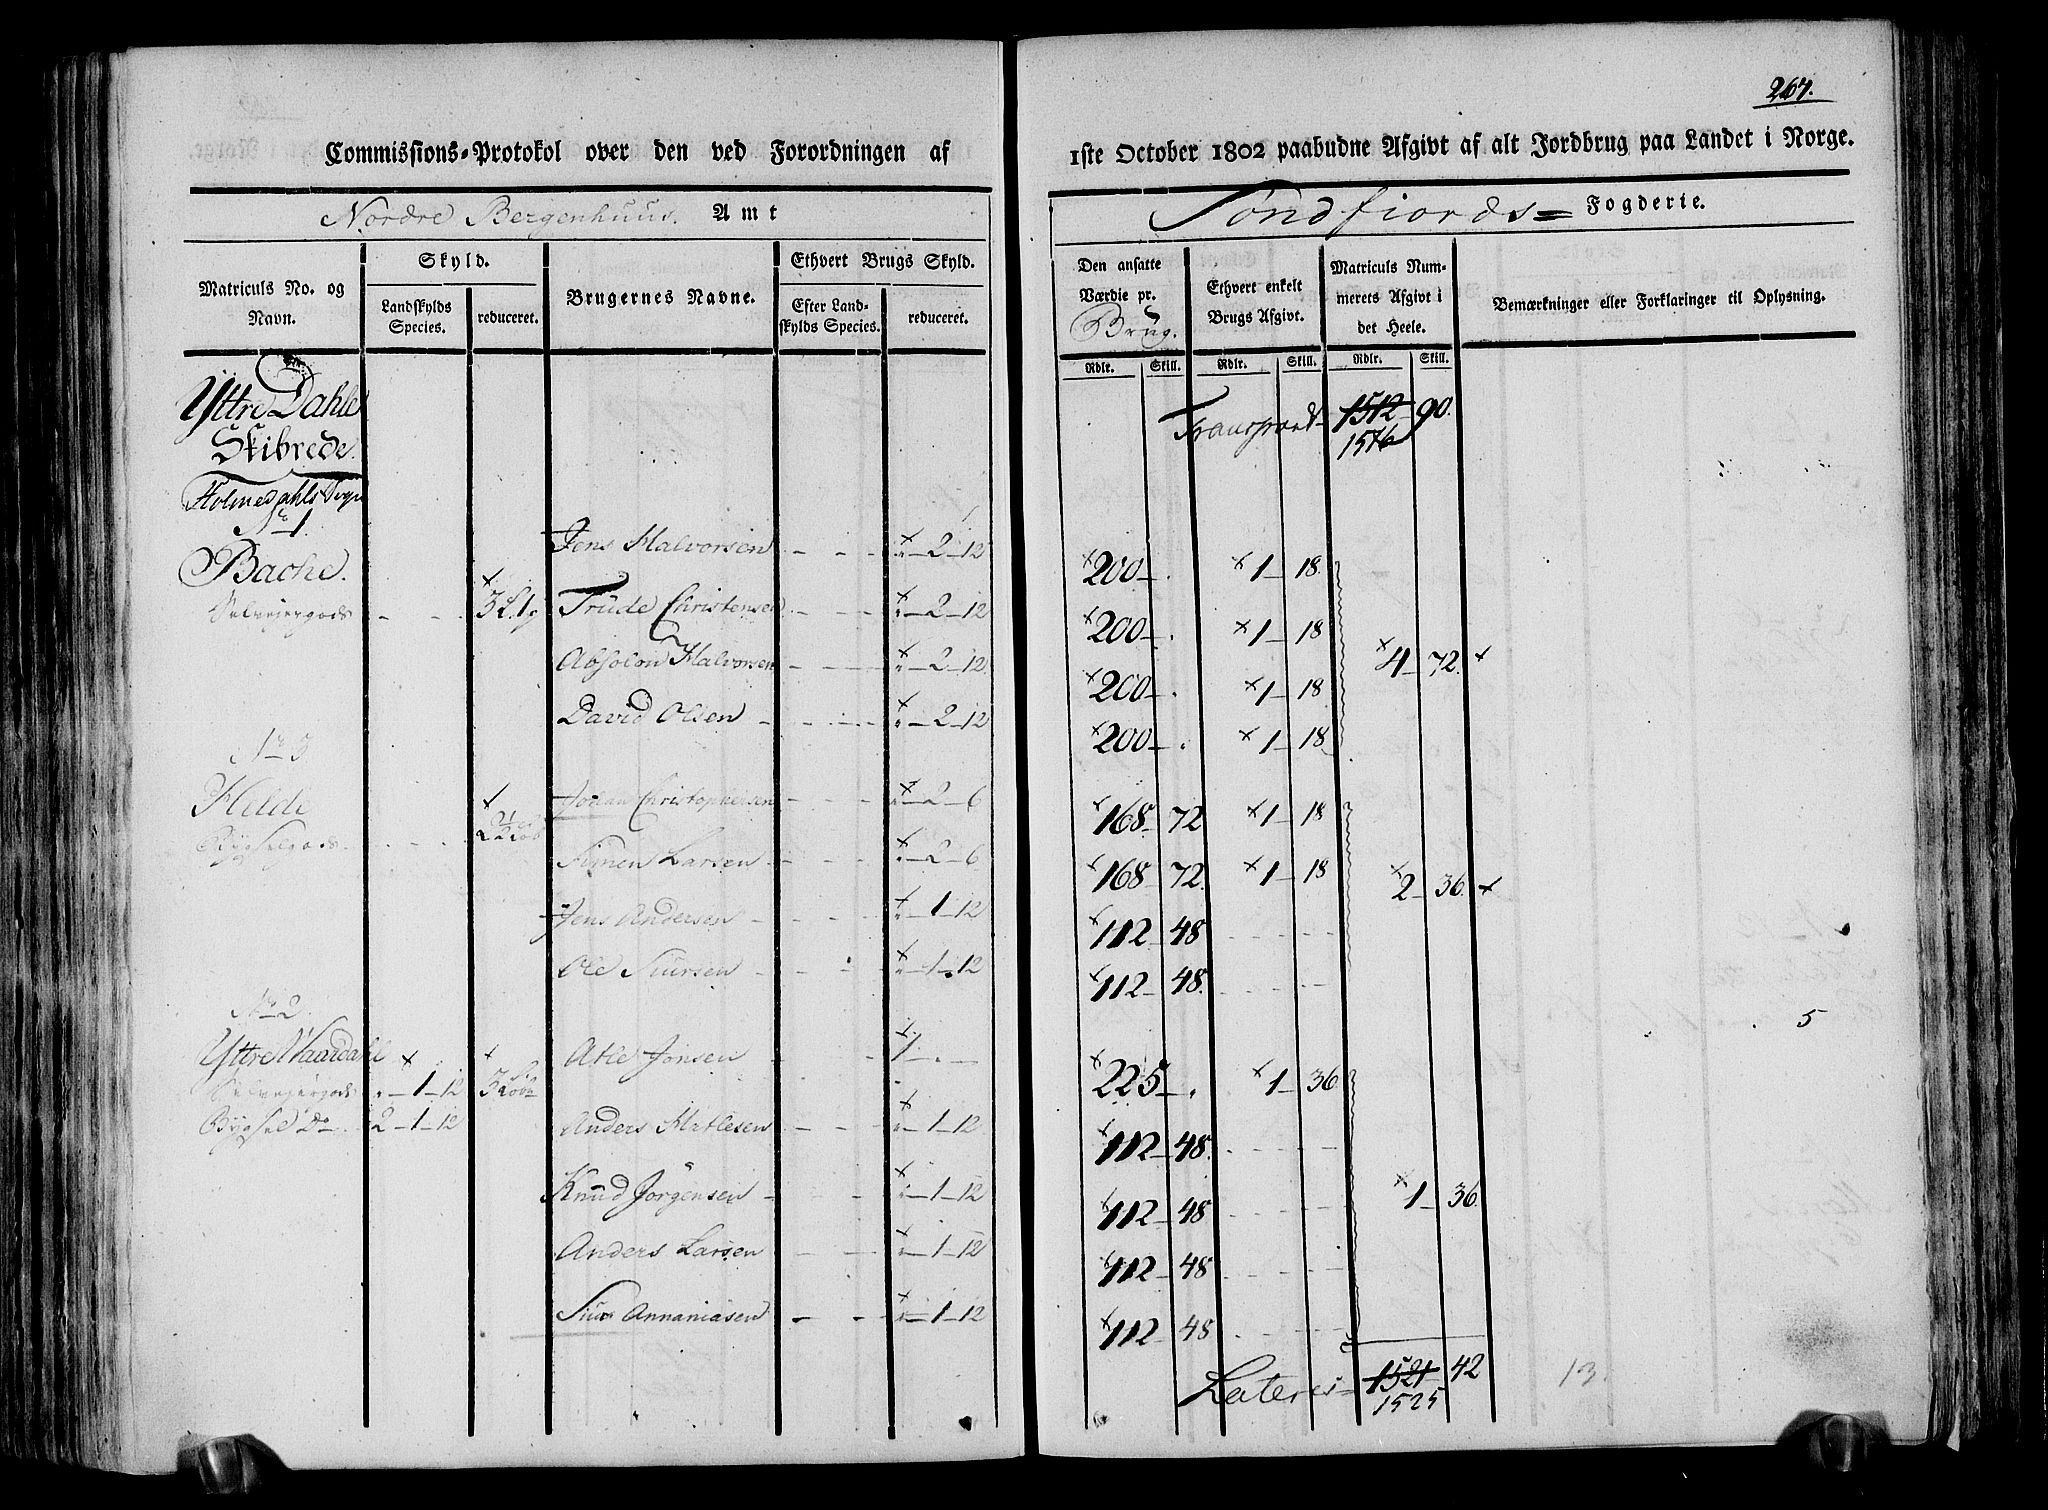 267.
Commissions-Protokol over den ved Forordningen af 1ste October 1802 paabudne Afgivt af alt Jordbrug paa Landet i Norge.
Nordre Bergenhuus. Amt
Søndfiords= Fogderie.
Matriculs No. og Navn.
Skyld.
Landskylds Species.
reduceret.
Brugernes Navne.
Ethvert Brugs Skyld.
Efter Landskylds Species.
reduceret.
Den ansatte Værdie pr. Brug.
Ethvert enkelt Brugs Afgivt.
Matriculs Nummerets Afgivt i det Heele.
Bemærkninger eller Forklaringer til Oplysning.
Rdlr. Skill. Rdlr. Skill. Rdlr. Skill.
Yttre Dahle
Skibrede.
Transport 1512 90.
1516
Holmedahls Sogn
No 1
Bache.
Selveiergods
Jens Halvorsen 2 12 200 1 18
Trude Christensen 2 12 200 1 18
Absolon Halvorsen 2 12 200 1 18 4 72
David Olsen 2 12 200 1 18
No 3
Helde
Bygselgods
Johan Christophersen 2 6 168 72 1 18
Simen Larsen 2 6 168 72 1 18 2 36
Jens Andersen 1 12 112 48
Ole Siursen 1 12 112 48
No 2
Yttre Naardahl
Selveiergods 1 12
Bygsel Do 2 1 12
Atle Jonsen 1 225 1 36
Anders Matlesen 1 12 112 48
Knud Jørgensen 1 12 112 48 1 36
Anders Larsen 1 12 112 48
Siur Annaniasen 1 12 112 48
5
Lateres 1521 42
1525
13.